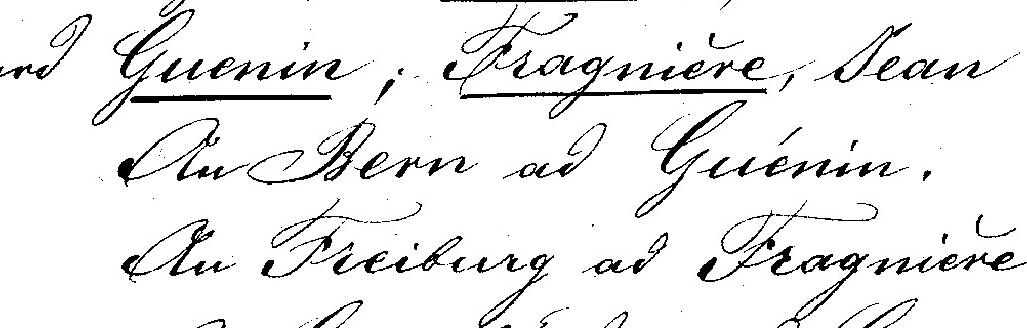 Guenin ; Fragnière, Jean
An Bern ad Guénin.
An Freiburg ad Fragnière